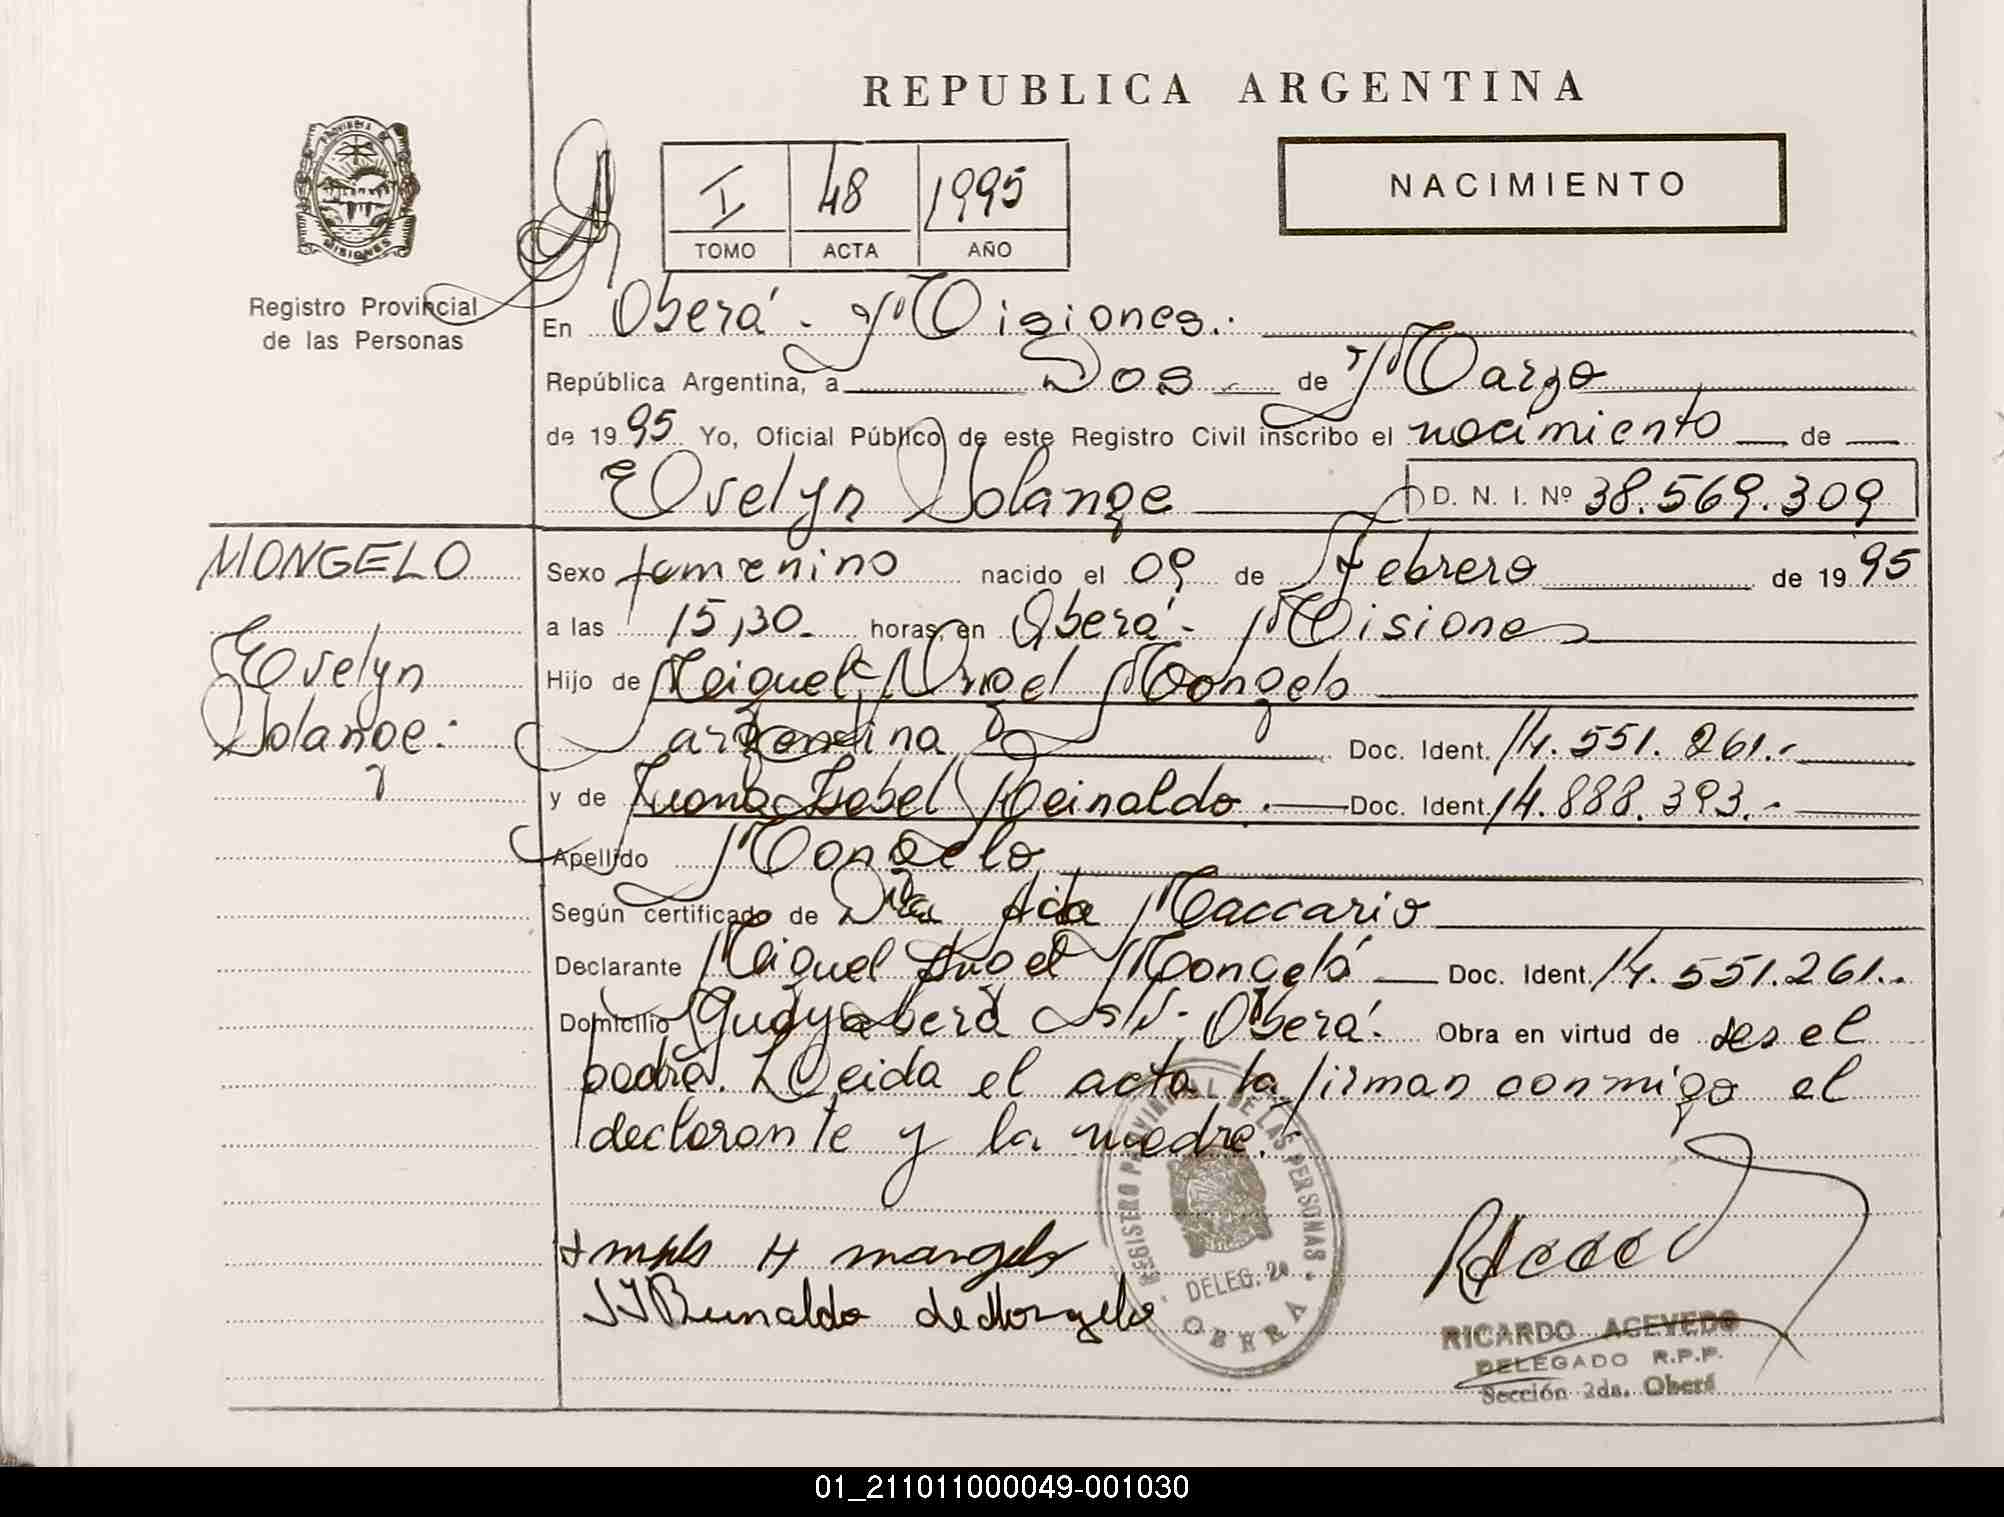 REPUBLICA ARGENTINA
PROVINCIA DE
MISIONES
Registro Provincial
de las Personas
I 48 1995
TOMO ACTA AÑO
NACIMIENTO
En Oberá - Misiones.-
República Argentina, a Dos de Marzo
de 1995 Yo, Oficial Público de este Registro Civil inscribo el nacimiento de
Evelyn Solange D. N. I. Nº 38.569.309
MONGELO
Evelyn
Solange:
Sexo femenino nacido el 09 de Febrero de 1995
a las 15,30 horas, en Oberá - Misiones
Hijo de Miguel Angel Mongelo
argentino Doc. Ident. 14.551.261.-
y de Juana Isabel Reinaldo.- Doc. Ident. 14.888.393.-
Apellido Mongelo
Según certificado de Dra Aida Maccario
Declarante Miguel Angel Mongeló Doc. Ident. 14.551.261.-
Domicilio Guayabera S/N- Oberá. Obra en virtud de ser el
padre. Leida el acta la firman conmigo el
declarante y la madre.-
REGISTRO PROVINCIAL DE LAS PERSONAS
DELEG. 2ª
OBERA
J I Reinaldo de Mongelo
RICARDO ACEVEDO
DELEGADO R.P.P.
Sección 2da. Oberá
01_211011000049-001030